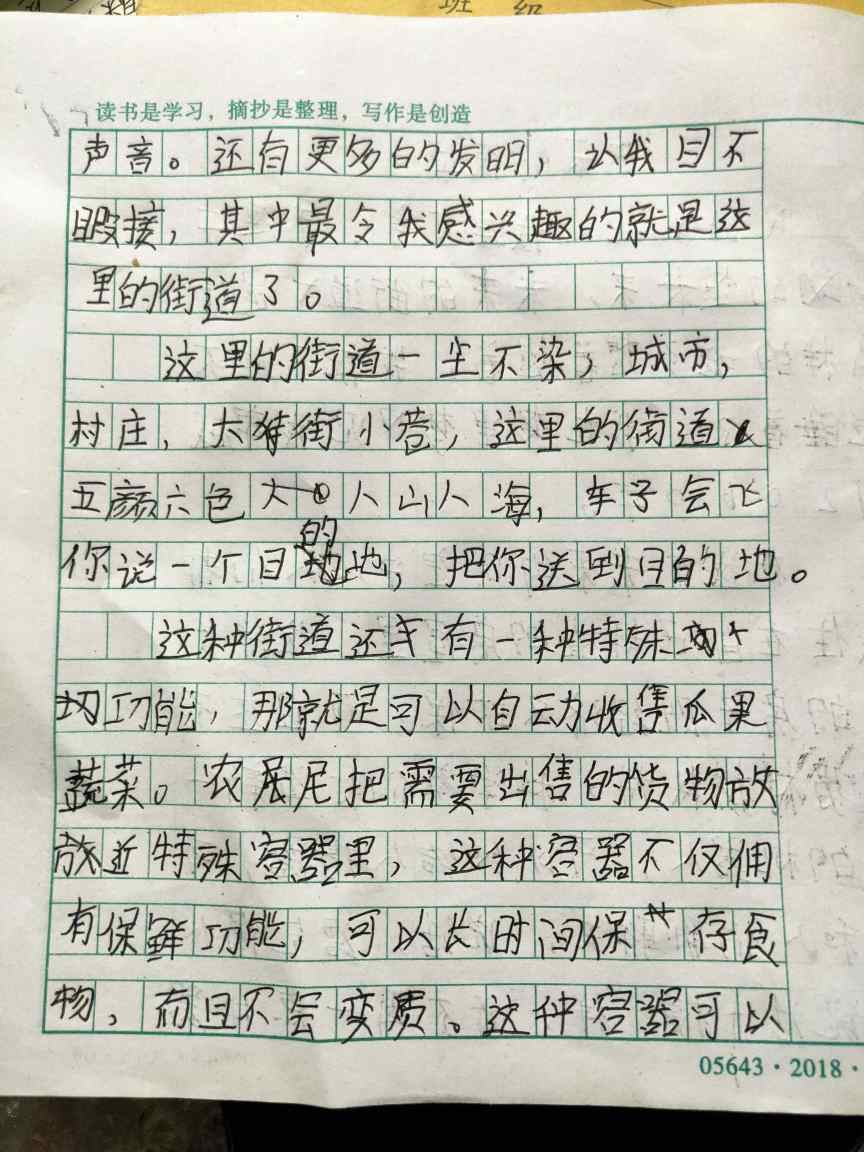 班 级
读书是学习，摘抄是整理，写作是创造
声音。还有更多的发明，认我目不
暇接，其中最令我感兴趣的就是这
里的街道了。
这里的街道一尘不染，城市，
村庄，大街小巷，这里的街道
五颜六色人山人海，车子会飞
你说一个目的地，把你送到目的地。
这种街道还有一种特殊
功能，那就是可以自动收售瓜果
蔬菜。农居民把需要出售的货物放
放近特殊容器里，这种容器不仅佣
有保鲜功能，可以长时间保存食
物，而且不会变质。这种容器可以
05643·2018·